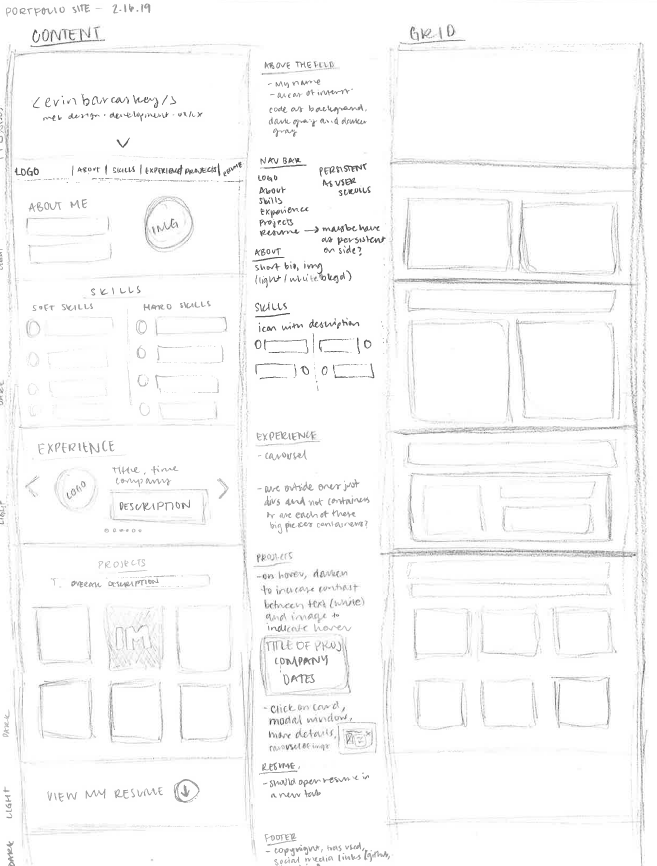 PORTFOLIO SITE - 2.16.19
CONTENT
web design · development · ux/ux
LOGO | ABOUT | SKILLS | EXPERIENCE PROJECTS |
ABOUT ME
IMG
SKILLS
SOFT SKILLS
HARD SKILLS
EXPERIENCE
LOGO
Title, time
company
DESCRIPTION
PROJECTS
T. OVERALL DESCRIPTION
VIEW MY RESUME
ABOVE THE FOLD
- My name
- areas of interest
code as background,
dark gray and darker
gray
NAV BAR
LOGO
About
Skills
Experience
Projects
Resume → maybe have
as persistent
on side?
PERSISTENT
AS USER
SCROLLS
ABOUT
short bio, img
(light/white bkgd)
SKILLS
icon with description
EXPERIENCE
- carousel
- are outside ones just
divs and not containers
or are each of these
big picker containers?
PROJECTS
- on hover, darken
to increase contrast
between text (white)
and image to
indicate hover
TITLE OF PROJ
COMPANY
DATES
- Click on card,
modal window,
more details,
carousel of imgs
RESUME.
- should open resume in
a new tab
FOOTER
- copyright, used,
social media links (github,
GRID
DARK
LIGHT
DARK